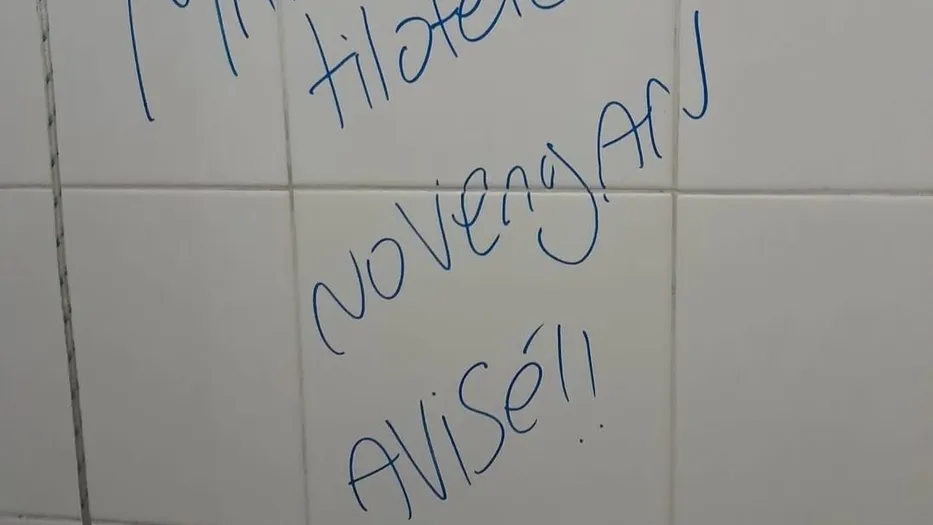 tilotele
NO VENgAN
AVISÉ!!